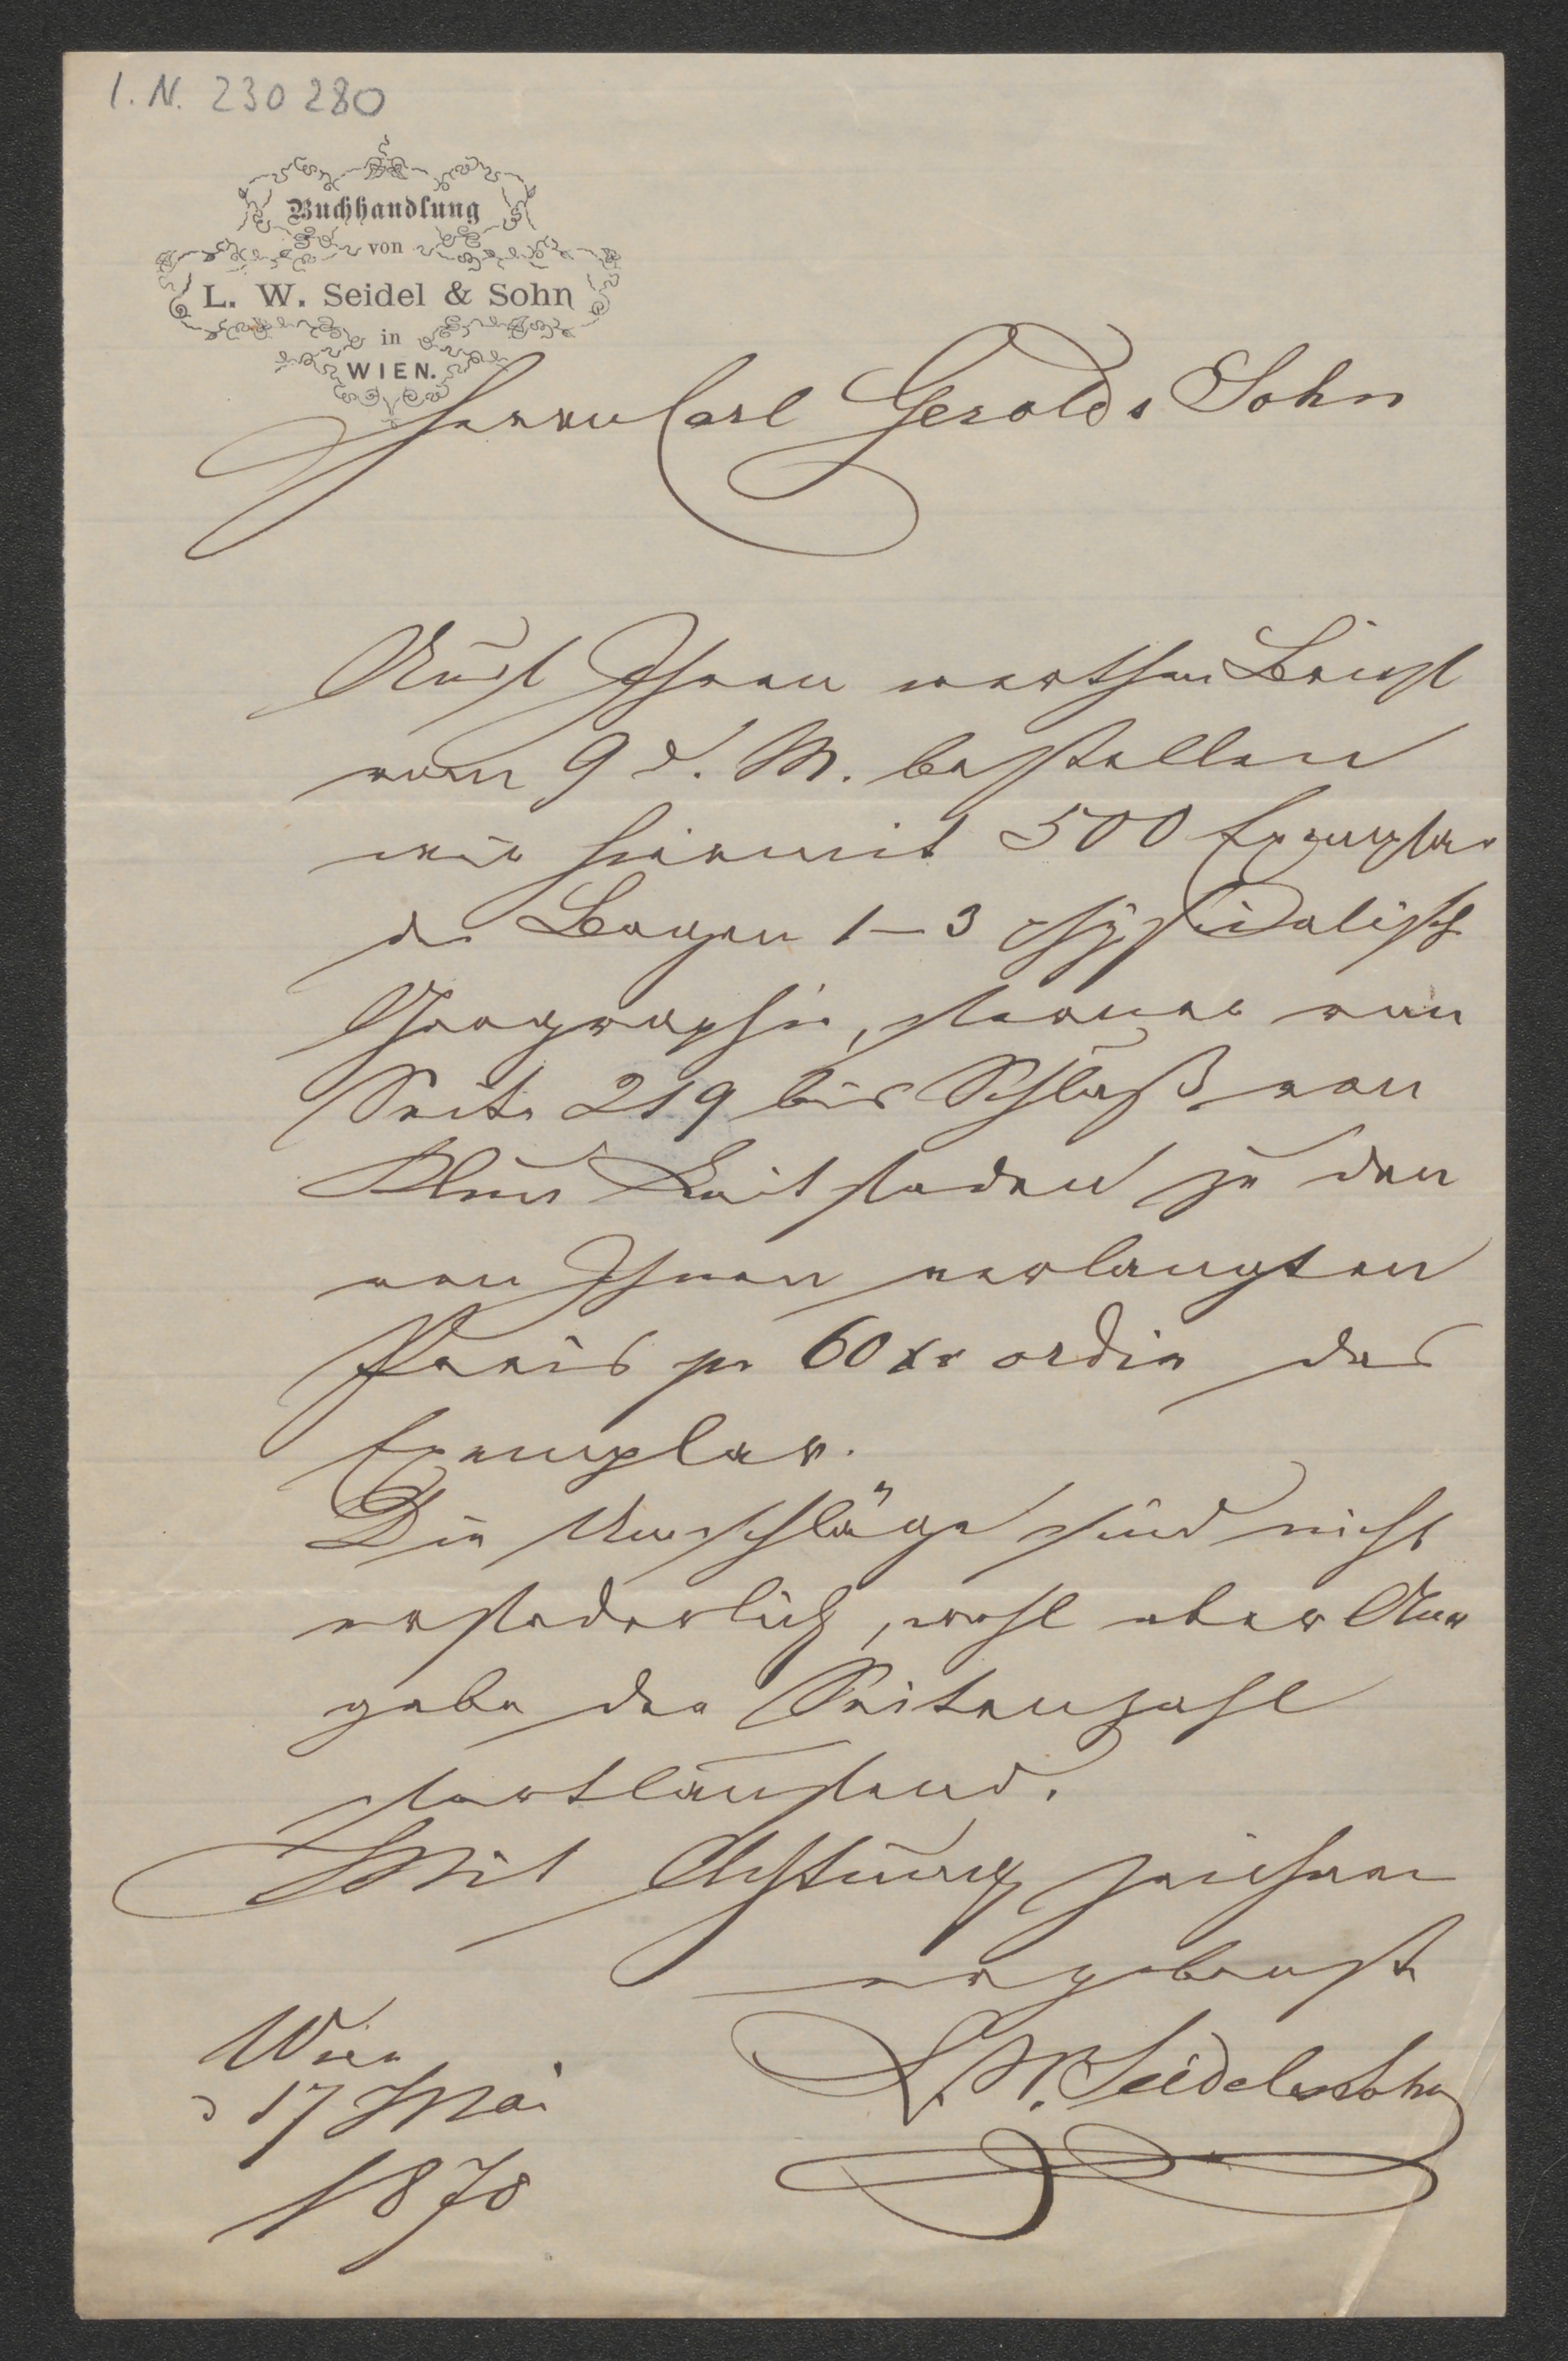 I. N. 230280
Buchhandlung
von
L. W. Seidel & Sohn
in
WIEN.
Herrn Carl Gerolds Sohn
Auf Ihren werthen Brief
vom 9 d. M. bestellen
wir hiermit 500 Exemplar
der Bogen 1–3 physikalische
Geographie, ferner von
Seite 219 bis Schluß von
Klun Leitfaden zu den
von Ihnen verlangten
Preis pr 60 xr ordin das
Exemplar.
Die Umschläge sind nicht
erforderlich, wohl aber An
gabe der Seitenzahl
fortlaufend.
Mit Achtung zeichnen
ergebenst
L. W. Seidel & Sohn
Wien
d 17 Mai
1878